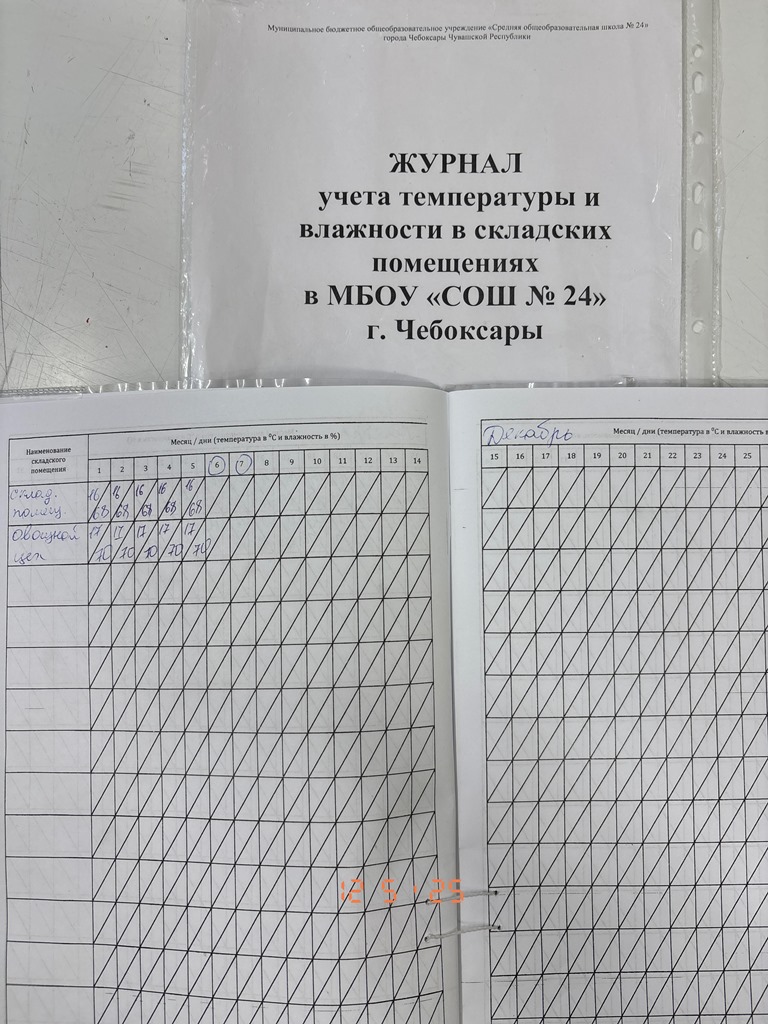 Муниципальное бюджетное общеобразовательное учреждение «Средняя общеобразовательная школа № 24»
города Чебоксары Чувашской Республики
ЖУРНАЛ
учета температуры и
влажности в складских
помещениях
в МБОУ «СОШ № 24»
г. Чебоксары
Наименование
складского
помещения
Месяц / дни (температура в ⁰С и влажность в %)
1 2 3 4 5 6 7 8 9 10 11 12 13 14
Склад. 16 16 16 16 16
помещ. 68 68 68 68 68
Овощной 17 17 17 17 17
цех 70 70 70 70 70
Декабрь
Месяц / дни (температура в ⁰С и влажность в
15 16 17 18 19 20 21 22 23 24 25
12 5 '25